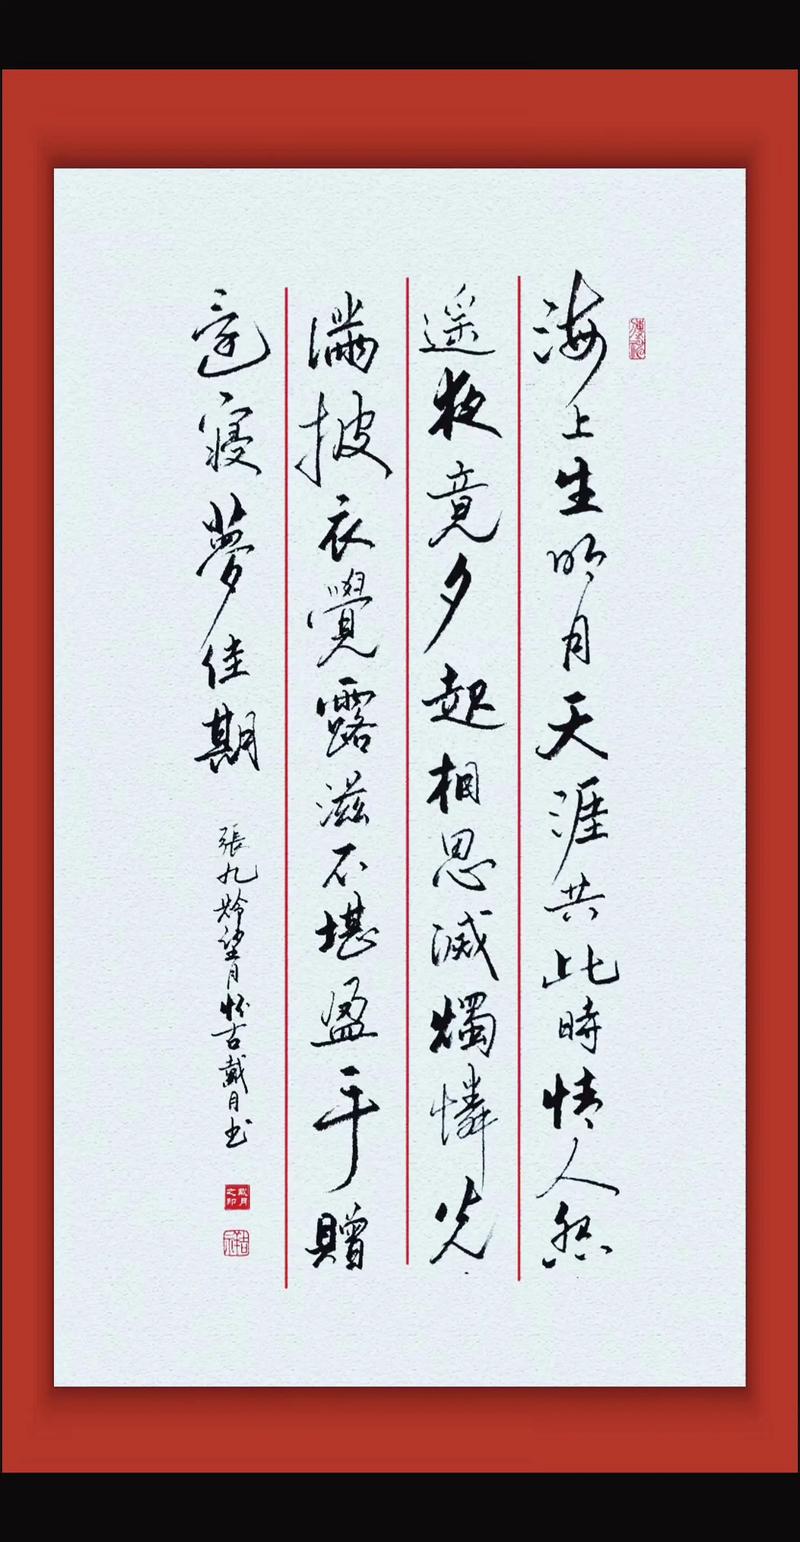 海上生明月天涯共此時情人怨
遥夜竟夕起相思滅燭憐光
滿披衣覺露滋不堪盈手贈
還寝夢佳期
張九龄望月怀古戴月书
戴月之印